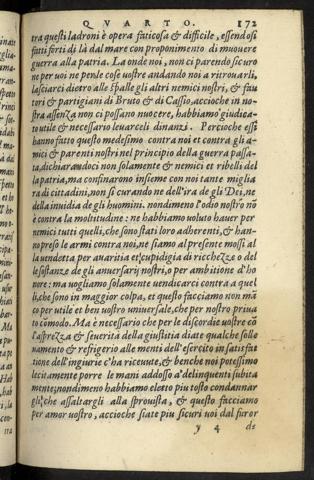 QVARTO. 172
tra questi ladroni è opera faticosa & difficile, essendosi
fatti forti di là dal mare con proponimento di muouere
guerra alla patria. La onde noi, non ci parendo sicuro
ne per voi ne per le cose vostre andando noi a ritrouarli,
lasciarci dietro alle spalle gli altri nemici nostri, & fau
tori & partigiani di Bruto & di Cassio, accioche in no-
stra assenza non ci possano nuocere, habbiamo giudica-
to utile & necessario leuarceli dinanzi. Percioche essi
hanno fatto questo medesimo contra noi et contra gli a-
mici & parenti nostri nel principio della guerra passa-
ta, dichiarandoci non solamente & nemici et ribelli del
la patria, ma confinarono insieme con noi tante miglia
ra di cittadini, non si curando ne dell'ira de gli Dei, ne
della inuidia de gli huomini. nondimeno l'odio nostro nõ
è contra la moltitudine: ne habbiamo voluto hauer per
nemici tutti quelli, che sono stati loro adherenti, & han-
no preso le armi contra noi, ne siamo al presente mossi al
la uendetta per auaritia et cupidigia di ricchezze o del
le sostanze de gli auuersarij nostri, o per ambitione d'ho
nore: ma vogliamo solamente uendicarci contra a quel
li, che sono in maggior colpa, et questo facciamo non mã
co per utile et ben vostro uniuersale, che per nostro priua
to cõmodo. Ma è necessario che per le discordie vostre cõ
l'asprezza & seuerità della giustitia diate qualche sollo
uamento & refrigerio alle menti dell'esercito in satisfat
tione dell'ingiurie c'ha riceuute, & benche noi potessimo
lecitamente porre le mani addosso a' delinquenti subita
mente; nondimeno habbiamo eletto piu tosto condannar
gli, che assaltargli alla sprouista, & questo facciamo
per amor vostro, accioche siate piu sicuri voi dal furor
y 4 de